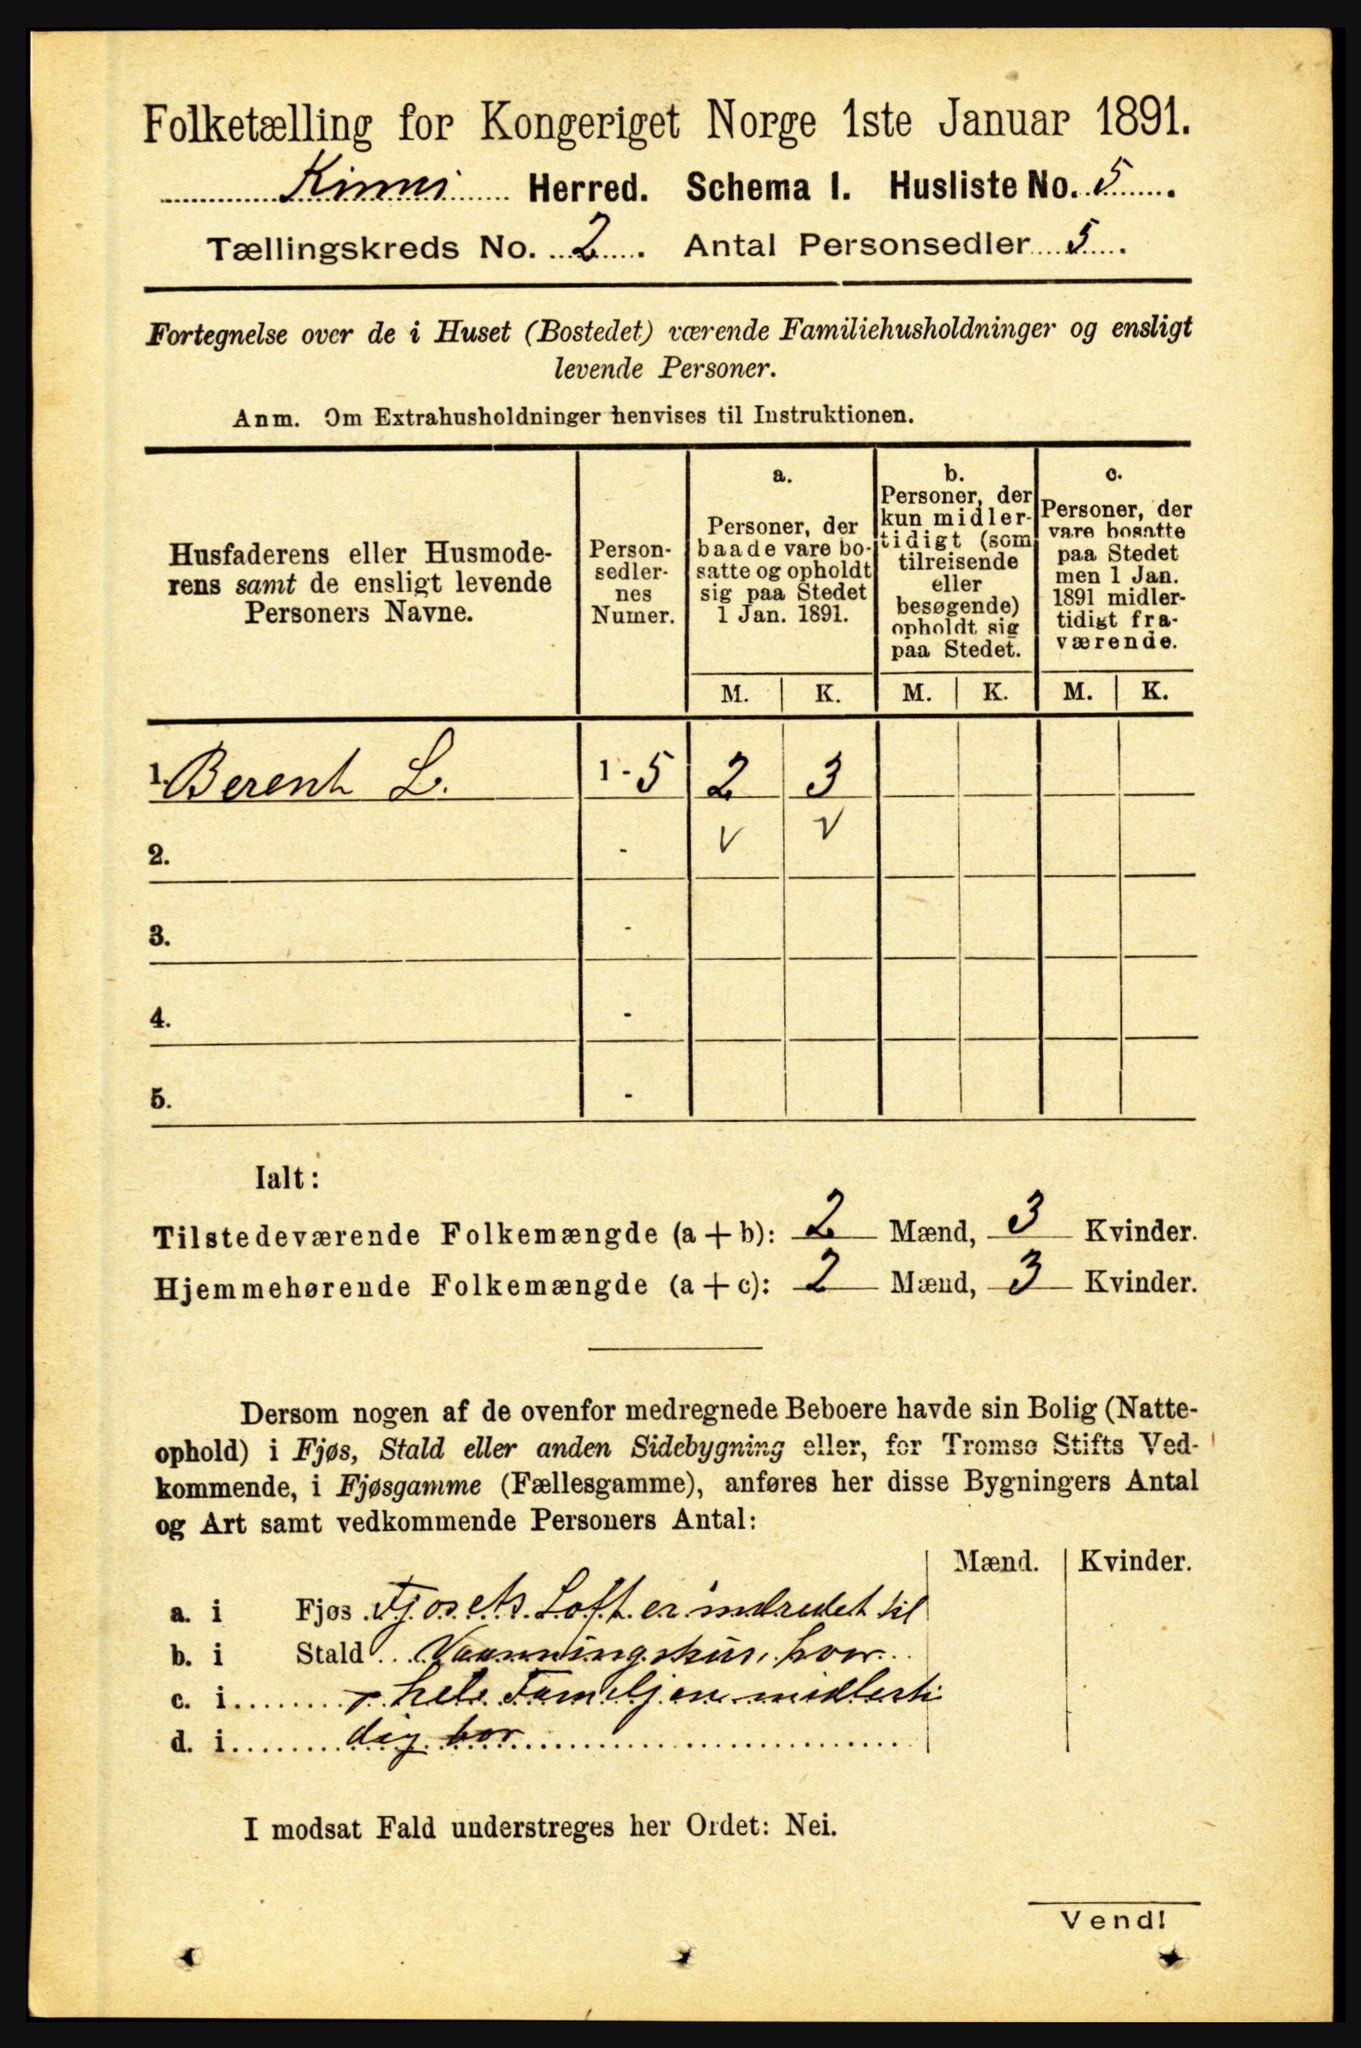 Folketælling for Kongeriget Norge 1ste Januar 1891.
Kinns Herred. Schema I. Husliste No. 5.
Tællingskreds No. 2. Antal Personsedler 5.
Fortegnelse over de i Huset (Bostedet) værende Familiehusholdninger og ensligt
levende Personer.
Anm. Om Extrahusholdninger henvises til Instruktionen.
Husfaderens eller Husmode-
rens samt de ensligt levende
Personers Navne.
Person-
sedler-
nes
Numer.
a.
Personer, der
baade vare bo-
satte og opholdt
sig paa Stedet
1 Jan. 1891.
b.
Personer, der
kun midler-
tidigt (som
tilreisende
eller
besøgende)
opholdt sig
paa Stedet.
c.
Personer, der
vare bosatte
paa Stedet
men 1 Jan.
1891 midler-
tidigt fra-
værende.
M. K. M. K. M. K.
1. Berent L. 1 - 5 2 3
2. - v v
3. -
4. -
5. -
Ialt:
Tilstedeværende Folkemængde (a + b): 2 Mænd, 3 Kvinder.
Hjemmehørende Folkemængde (a + c): 2 Mænd, 3 Kvinder.
Dersom nogen af de ovenfor medregnede Beboere havde sin Bolig (Natte-
ophold) i Fjøs, Stald eller anden Sidebygning eller, for Tromsø Stifts Ved-
kommende, i Fjøsgamme (Fællesgamme), anføres her disse Bygningers Antal
og Art samt vedkommende Personers Antal:
Mænd. Kvinder.
a. i Fjøs Fjosets Loft er indredet til
b. i Stald Vaaningshus, hvor
c. i hele Familjen midlerti
d. i dig bor
I modsat Fald understreges her Ordet: Nei.
Vend!